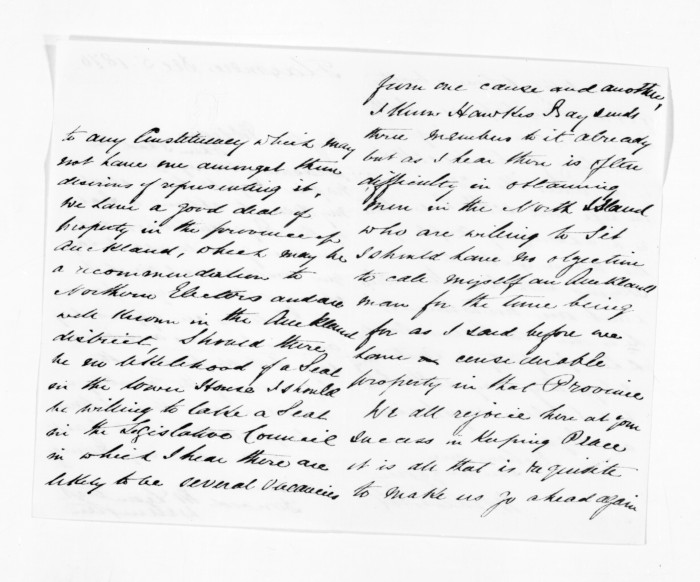 to any Constituency which may
not have one amongst them
desirous of representing it,
We have a good deal of
property in the province of
Auckland, which may be
a recommendation to
Northern Electors and are
well known in the Auckland
district, Should there
be no likelihood of a Seat
in the lower House I should
be willing to take a Seat
in the Legislative Council
in which I hear there are
likely to be several vacancies
from one cause and another,
I know Hawkes Bay sends
three members to it already
but as I hear there is often
difficulty in obtaining
men in the North Island
who are willing to sit
I should have no objection
to call myself an Auckland
man for the time being
for as I said before we
have considerable
property in that Province
We all rejoice here at your
success in keeping Peace
it is all that is requisite
to make us go ahead again